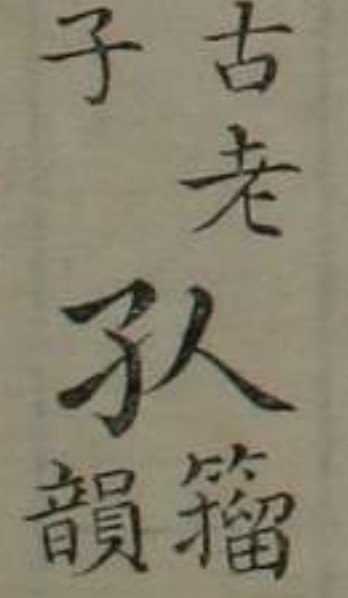 古老
子
籀
韻